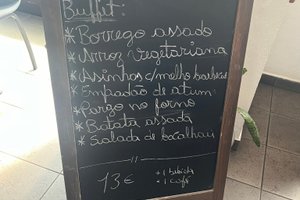 Buffet:
* Borrego assado
* Arroz Vegetariana
* Assinhas c/melho barbecue
* Empadão de atum
* Pargo no forno
* Batata assada
* Salada de bacalhau
13€ + 1 bebida
+ 1 café